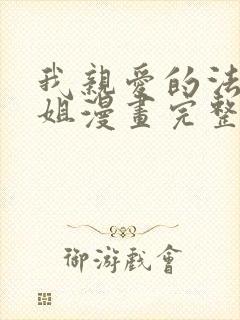 我親愛的法
姐漫畫完整
御游戲會